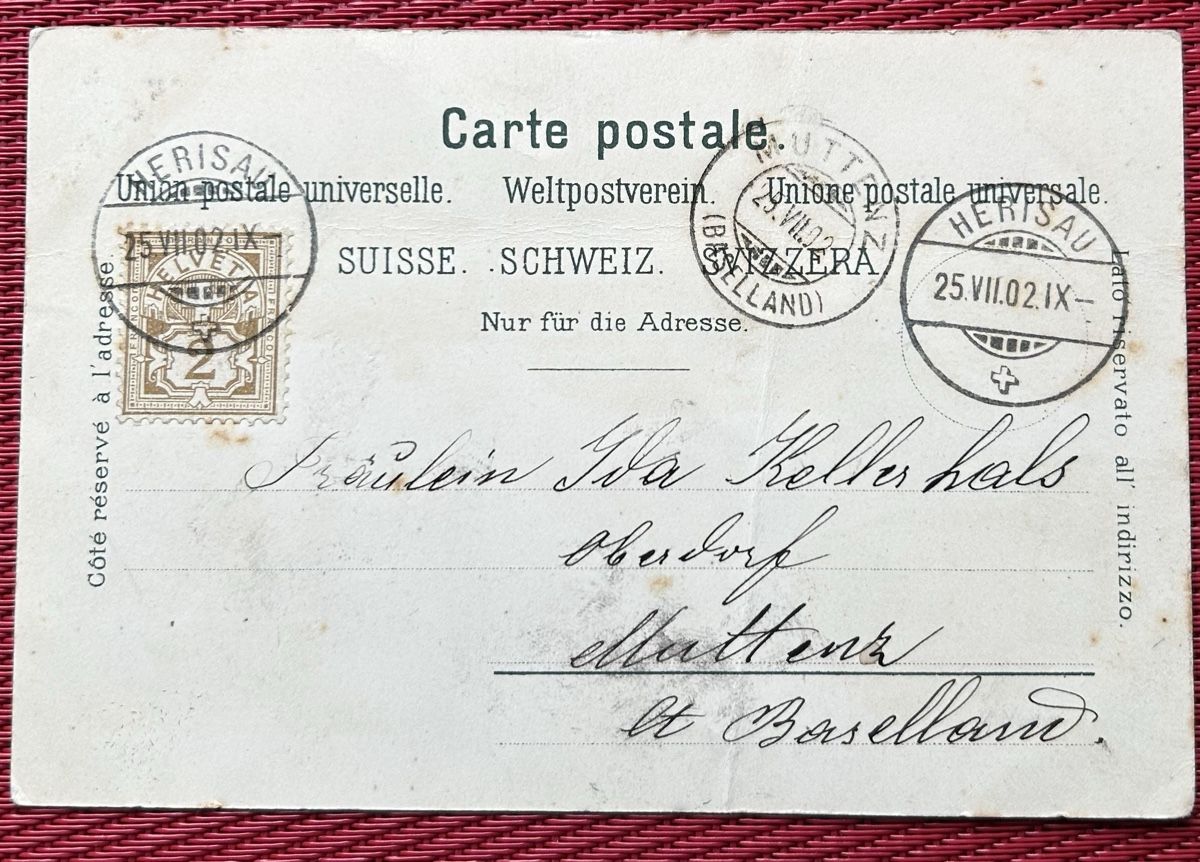 Carte postale.
Union postale universelle. Weltpostverein. Unione postale universale.
SUISSE. SCHWEIZ. SVIZZERA
Nur für die Adresse.
Côté réservé à l'adresse.
Lato riservato all' indirizzo.
HERISAU
25.VII.02.IX
HELVETIA
FRANCO
2
MUTTENZ
25.VII.02
(BASELLAND)
HERISAU
25.VII.02.IX—
Fräulein Ida Kellerhals
Oberdorf
Muttenz
Ct Baselland.